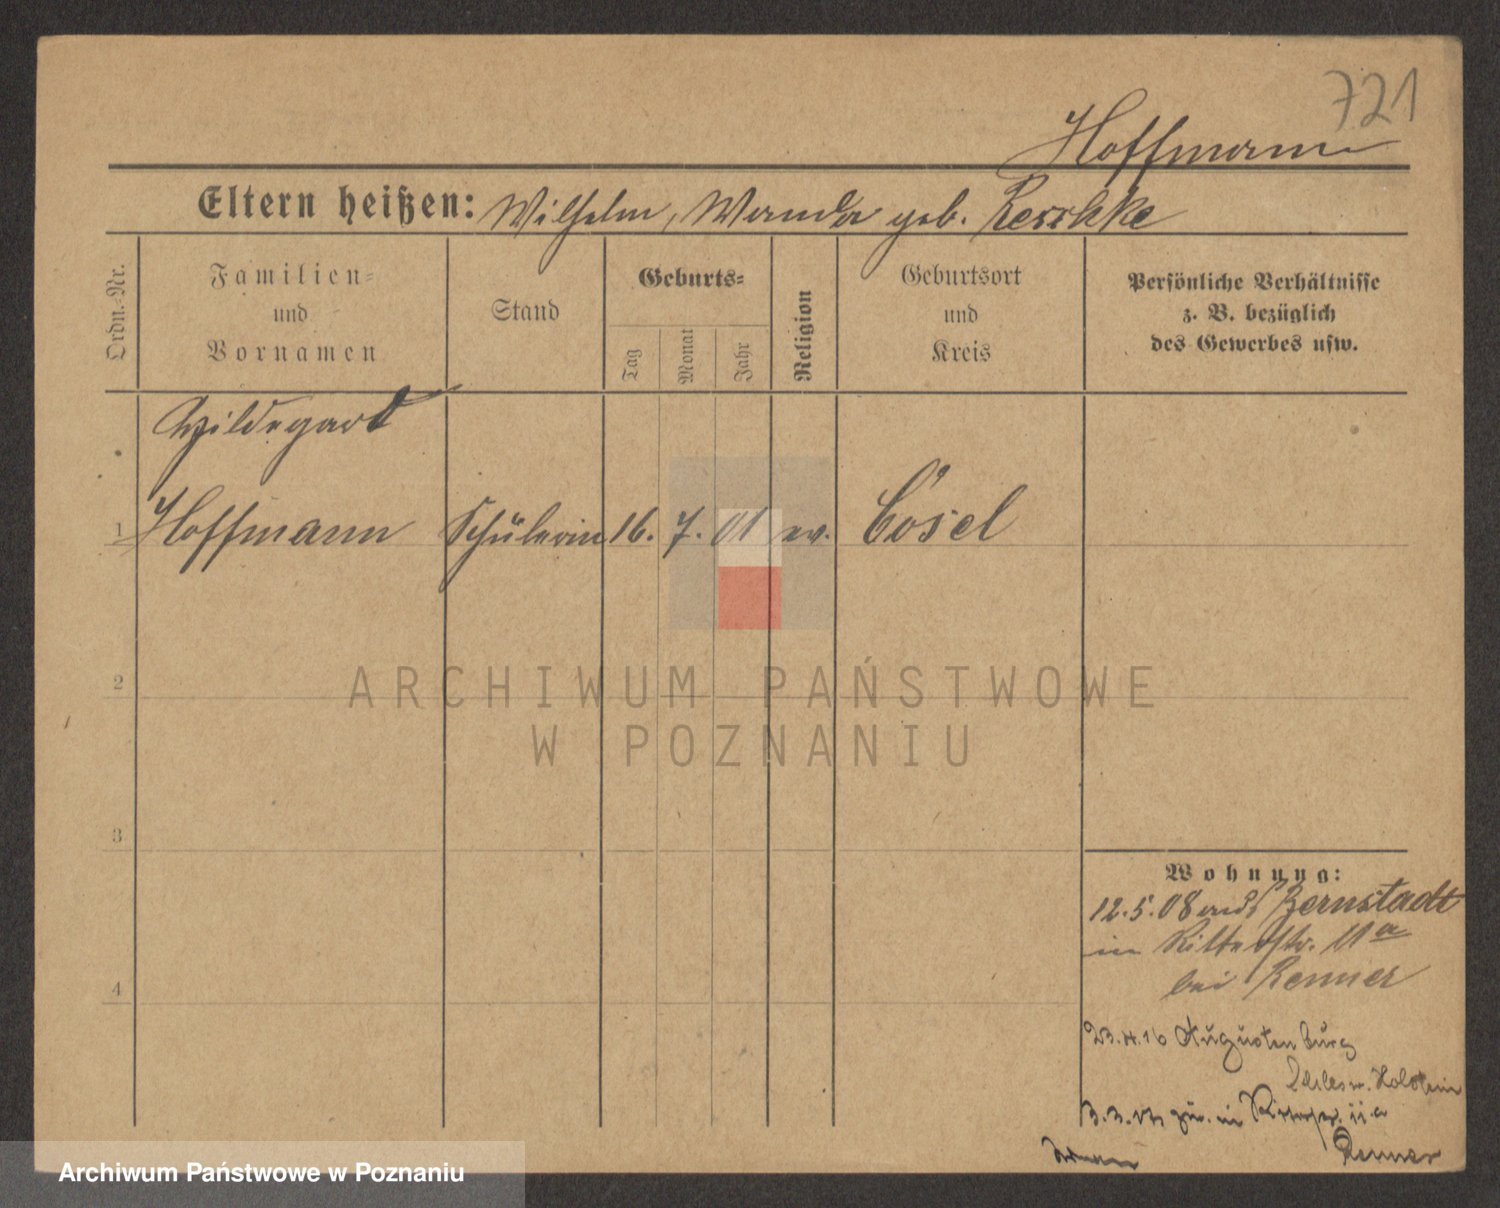 721
Hoffmann
Eltern heißen: Wilhelm, Wanda geb. Reschke
Ordn.-Nr.
Familien-
und
Vornamen
Stand
Geburts-
Tag
Monat
Jahr
Religion
Geburtsort
und
Kreis
Persönliche Verhältnisse
z. B. bezüglich
des Gewerbes usw.
Hildegard
1 Hoffmann Schülerin 16. 7. 01 ev. Cosel
2
3
4
Wohnung:
12.5.08 aus Bernstadt
in Ritterstr. 11a
bei Renner
23.4.16 Augustenburg
Schlesw. Holstein
3.3. zur. in Ritterstr. 11a
Renner
ARCHIWUM PAŃSTWOWE
W POZNANIU
Archiwum Państwowe w Poznaniu